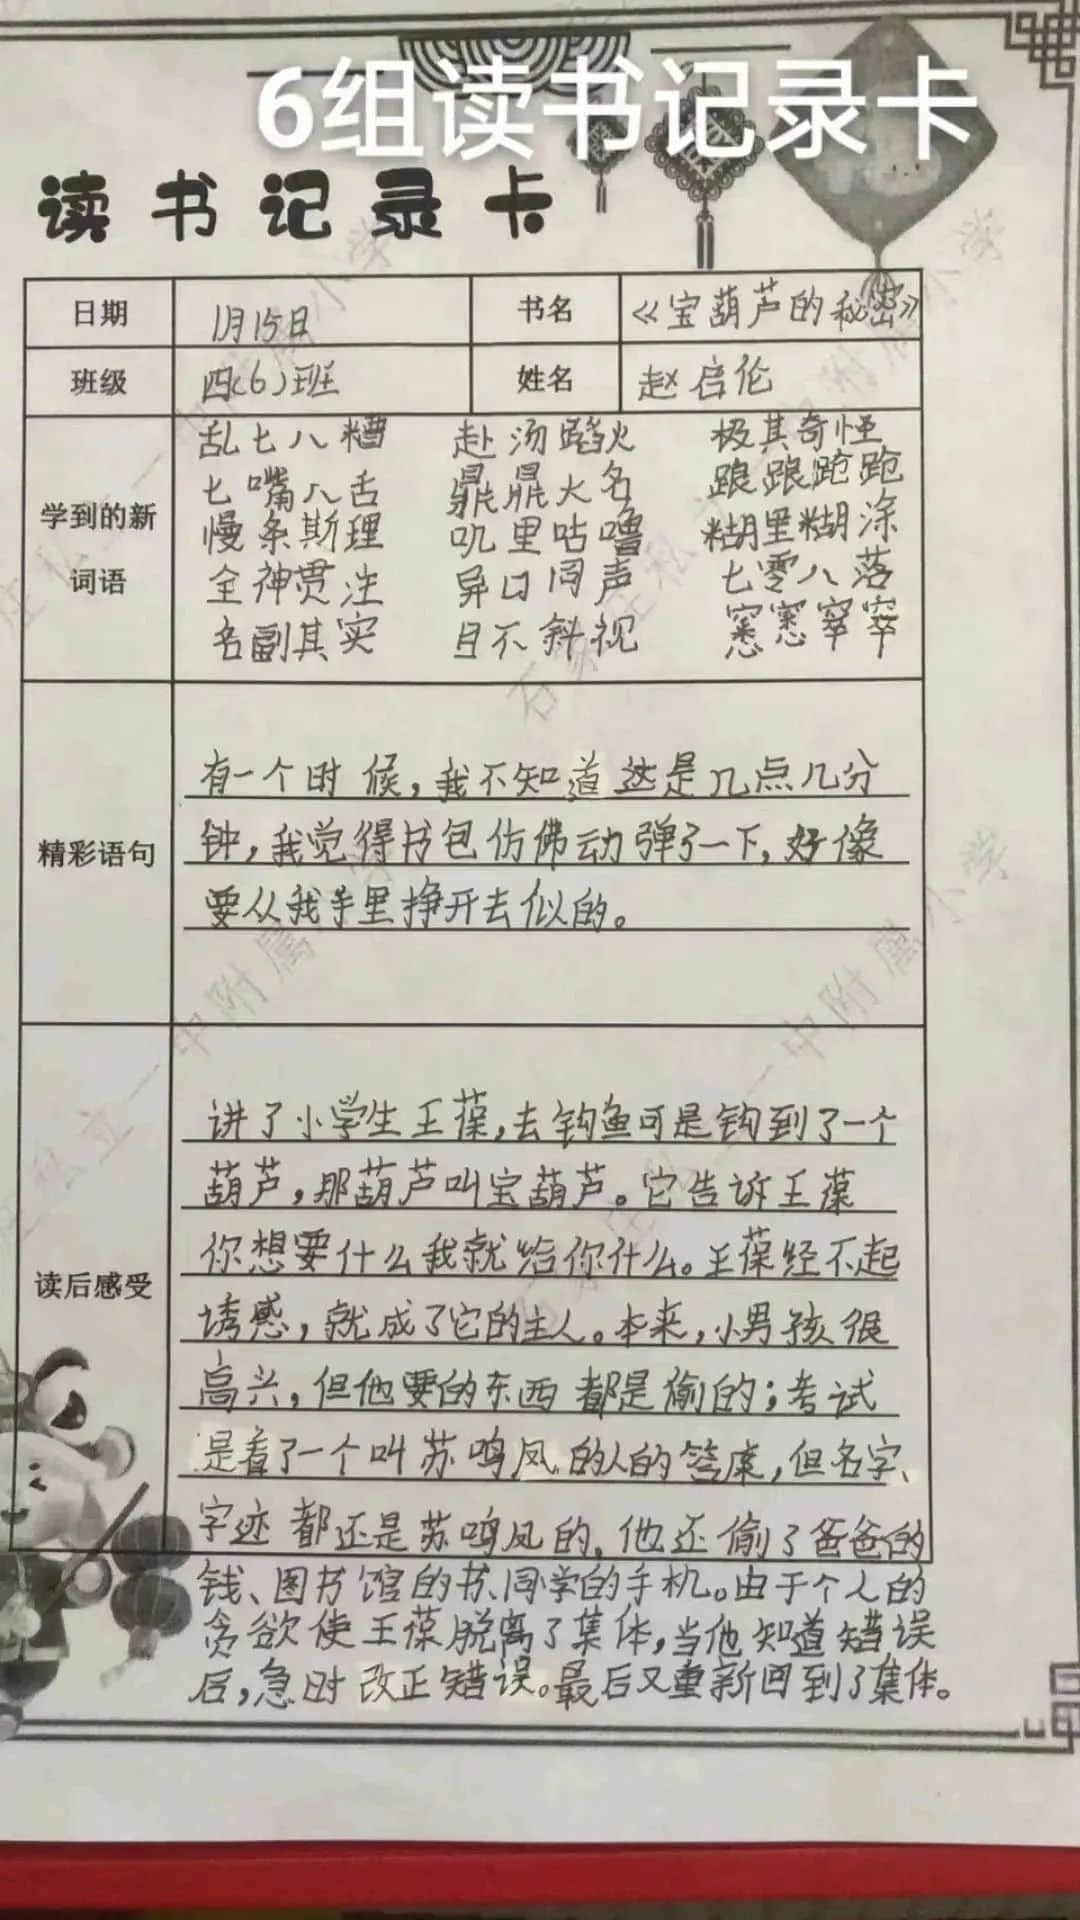 6组读书记录卡
读书记录卡
日期 1月15日 书名 《宝葫芦的秘密》
班级 四(6)班 姓名 赵启伦
学到的新词语
乱七八糟 赴汤蹈火 极其奇怪
七嘴八舌 鼎鼎大名 踉踉跄跄
慢条斯理 叽里咕噜 糊里糊涂
全神贯注 异口同声 七零八落
名副其实 目不斜视 窸窸窣窣
精彩语句
有一个时候,我不知道这是几点几分
钟,我觉得书包仿佛动弹了一下,好像
要从我手里挣开去似的。
读后感受
讲了小学生王葆,去钓鱼可是钓到了一个
葫芦,那葫芦叫宝葫芦。它告诉王葆
你想要什么我就给你什么。王葆经不起
诱惑,就成了它的主人。本来,小男孩很
高兴,但他要的东西都是偷的;考试
是看了一个叫苏鸣凤的人的答案,但名字、
字迹都还是苏鸣凤的,他还偷了爸爸的
钱、图书馆的书、同学的手机。由于个人的
贪欲使王葆脱离了集体,当他知道错误
后,急时改正错误。最后又重新回到了集体。
石家庄私立一中附属小学